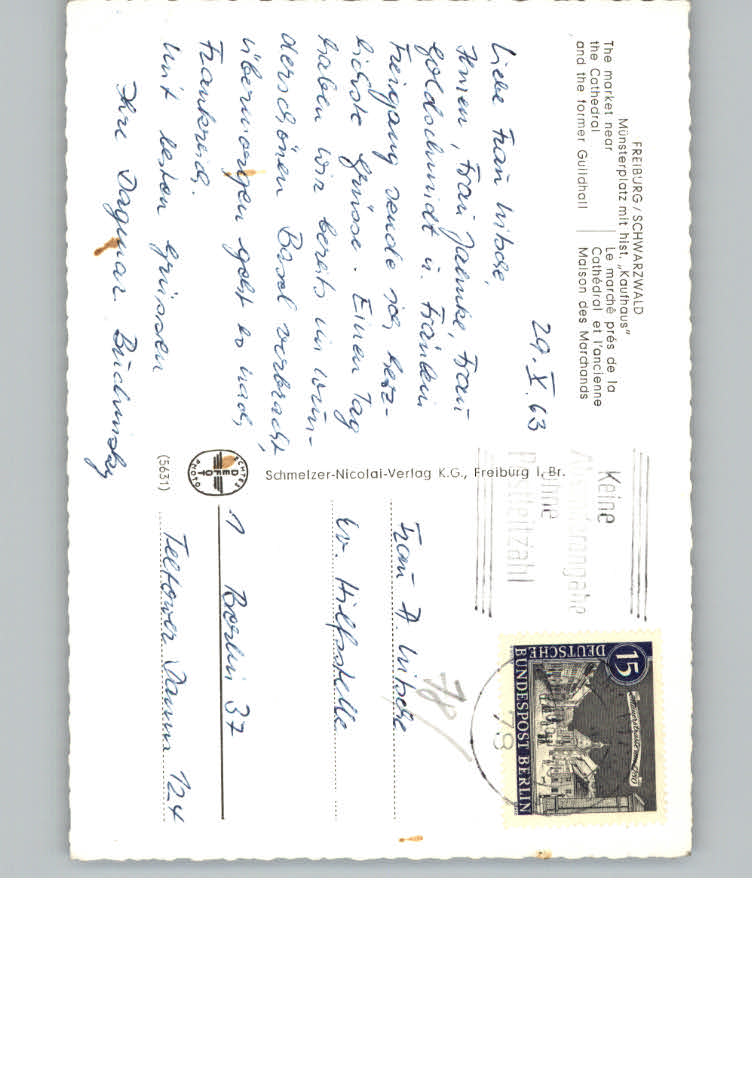 FREIBURG / SCHWARZWALD
Münsterplatz mit hist. „Kaufhaus"
The market near
the Cathedral
and the former Guildhall
Le marché prés de la
Cathédral et l'ancienne
Maison des Marchands
29. X. 63
Liebe Frau Nitsche,
Frau Jahnke, Frau
Goldschmidt u. Fräulein
sende ich herz-
lichste Grüsse. Einen Tag
haben wir bereits im wun-
derschönen Basel verbracht,
übermorgen geht es nach
Frankreich.
Mit besten Grüssen
Ihre Dagmar
Schmelzer-Nicolai-Verlag K.G., Freiburg i. Br.
ECHTES
DEFOT
PHOTO
(5631)
Keine
Absenderangabe
ohne
Postleitzahl
15
DEUTSCHE
BUNDESPOST BERLIN
78
78/
Frau A. Nitsche
Ev. Hilfsstelle
1 Berlin 37
Teltower Damm 124